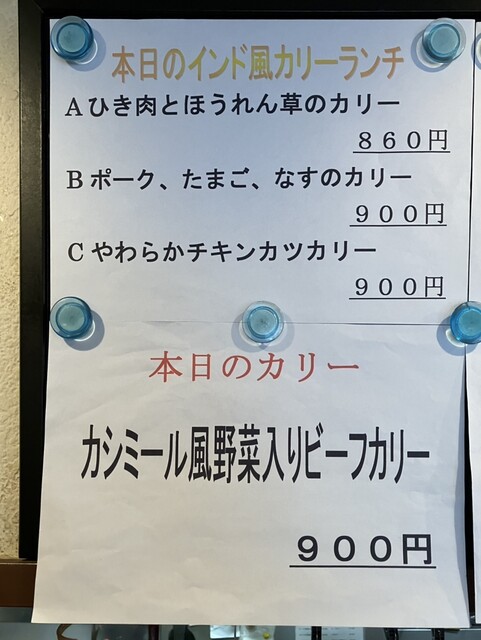 本日のインド風カリーランチ
Aひき肉とほうれん草のカリー
８６０円
Bポーク、たまご、なすのカリー
９００円
Cやわらかチキンカツカリー
９００円
本日のカリー
カシミール風野菜入りビーフカリー
９００円